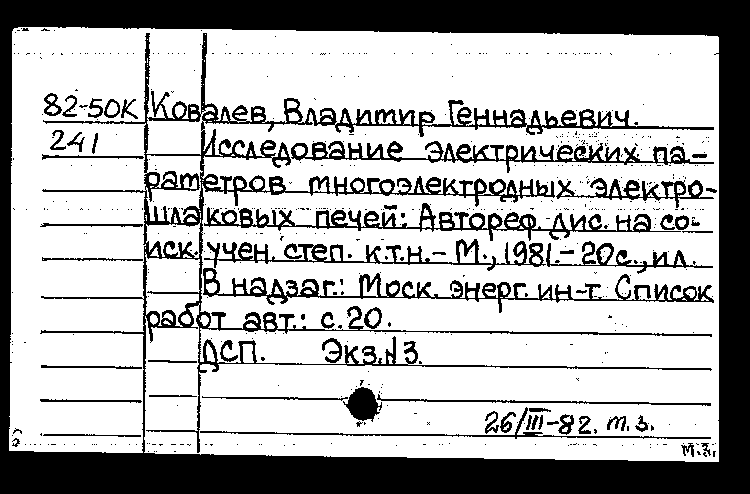 82-50К Ковалев, Владимир Геннадьевич.
241 Исследование электрических па-
раметров многоэлектродных электро-
шлаковых печей: Автореф. дис. на со-
иск. учен. степ. к.т.н.- М., 1981.- 20с., ил.
В надзаг.: Моск. энерг. ин-т. Список
работ авт.: с.20.
ДСП. Экз.N3.
26/III-82. т.з.
М.З.